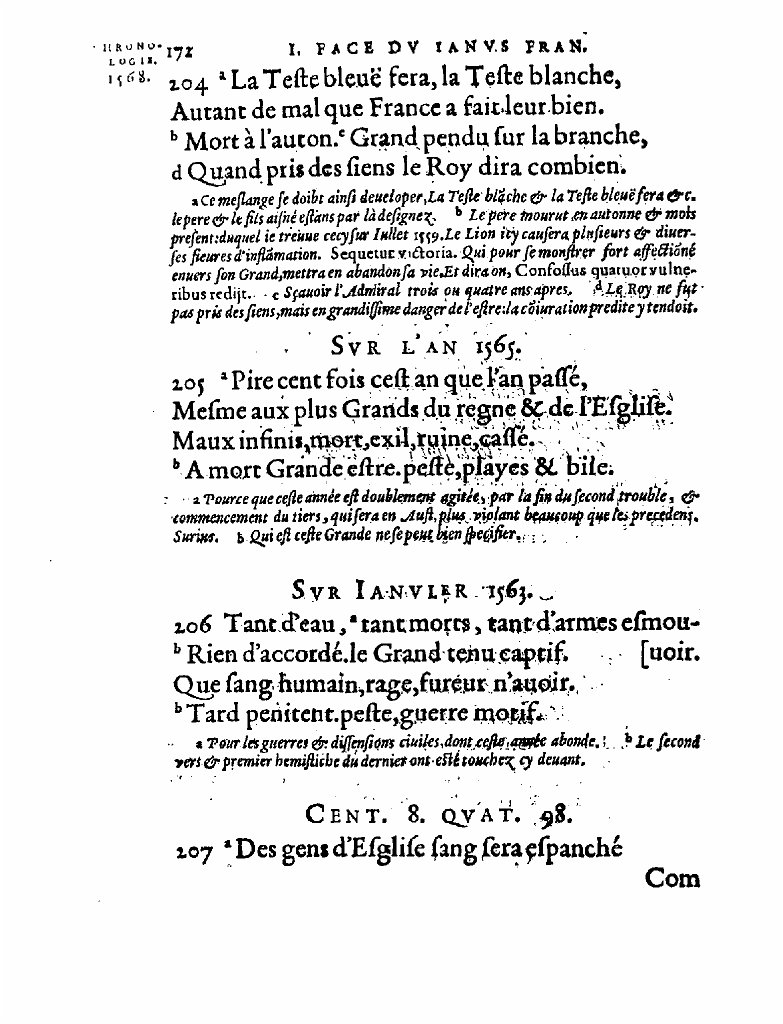 HRONO-
LOGIE.
1568.
172 I. FACE DV IANVS FRAN.
204 a La Teſte bleuë fera, la Teſte blanche,
Autant de mal que France a fait leur bien.
b Mort à l'auton. c Grand pendu ſur la branche,
d Quand pris des ſiens le Roy dira combien.
a Ce meſlange ſe doibt ainſi deueloper, La Teſte blãche & la Teſte bleuë fera &c.
le pere & le fils aiſné eſtans par là deſignez. b Le pere mourut en autonne & mois
preſent: duquel ie treuue cecy ſur Iullet 1559. Le Lion icy cauſera pluſieurs & diuer-
ſes fieures d'inflãmation. Sequetur victoria. Qui pour ſe monſtrer fort affectiõné
enuers ſon Grand, mettra en abandon ſa vie. Et dira on, Confoſſus quatuor vulne-
ribus redijt. c Sçauoir l'Admiral trois ou quatre ans apres. d Le Roy ne fut
pas pris des ſiens, mais en grandiſſime danger de l'eſtre: la cõiuration predite y tendoit.
SVR L'AN 1565.
205 a Pire cent fois ceſt an que l'an paſſé,
Meſme aux plus Grands du regne & de l'Egliſe.
Maux infinis, mort, exil, ruine, caſſé.
b A mort Grande eſtre. peſte, playes & bile.
a Pource que ceſte année eſt doublement agitée, par la fin du ſecond trouble, &
commencement du tiers, qui ſera en Auſt, plus violant beaucoup que les precedens.
Surius. b Qui eſt ceſte Grande ne ſe peut bien ſpecifier.
SVR IANVIER 1563.
206 Tant d'eau, a tant morts, tant d'armes eſmou-
b Rien d'accordé. le Grand tenu captif. [uoir.
Que ſang humain, rage, fureur n'auoir.
b Tard penitent. peſte, guerre motif.
a Pour les guerres & diſſenſions ciuiles, dont ceſte année abonde. b Le ſecond
vers & premier hemiſtiche du dernier ont eſté touchez cy deuant.
CENT. 8. QVAT. 98.
207 a Des gens d'Egliſe ſang ſera eſpanché
Com